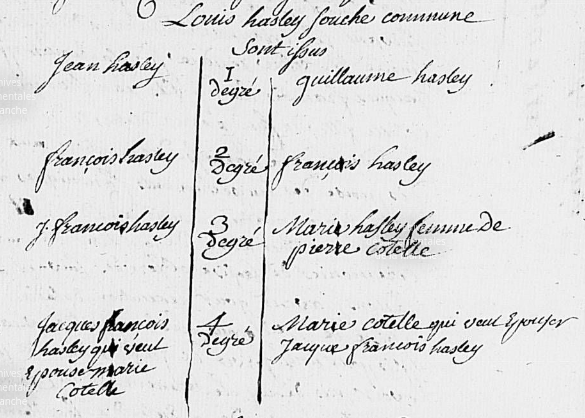 Louis hasley souche commune
sont issus
Jean hasley 1 degré guillaume hasley
françois hasley 2 degré françois hasley
J. françois hasley 3 degré Marie hasley femme de
pierre cotelle
Jacques françois 4 degré Marie cotelle qui veut Epouser
hasley qui veut Jacque françois hasley
Epouse marie
Cotelle